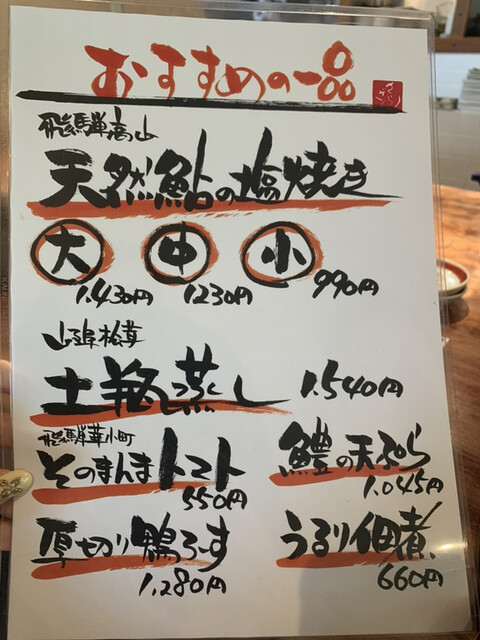 おすすめの一品
飛騨高山
天然鮎の塩焼き
大 中 小
1.430円 1230円 990円
土瓶蒸し 1.540円
そのまんまトマト
550円
鱧の天ぷら
1.045円
厚切り鴨ろーす
1.280円
うるり佃煮
660円